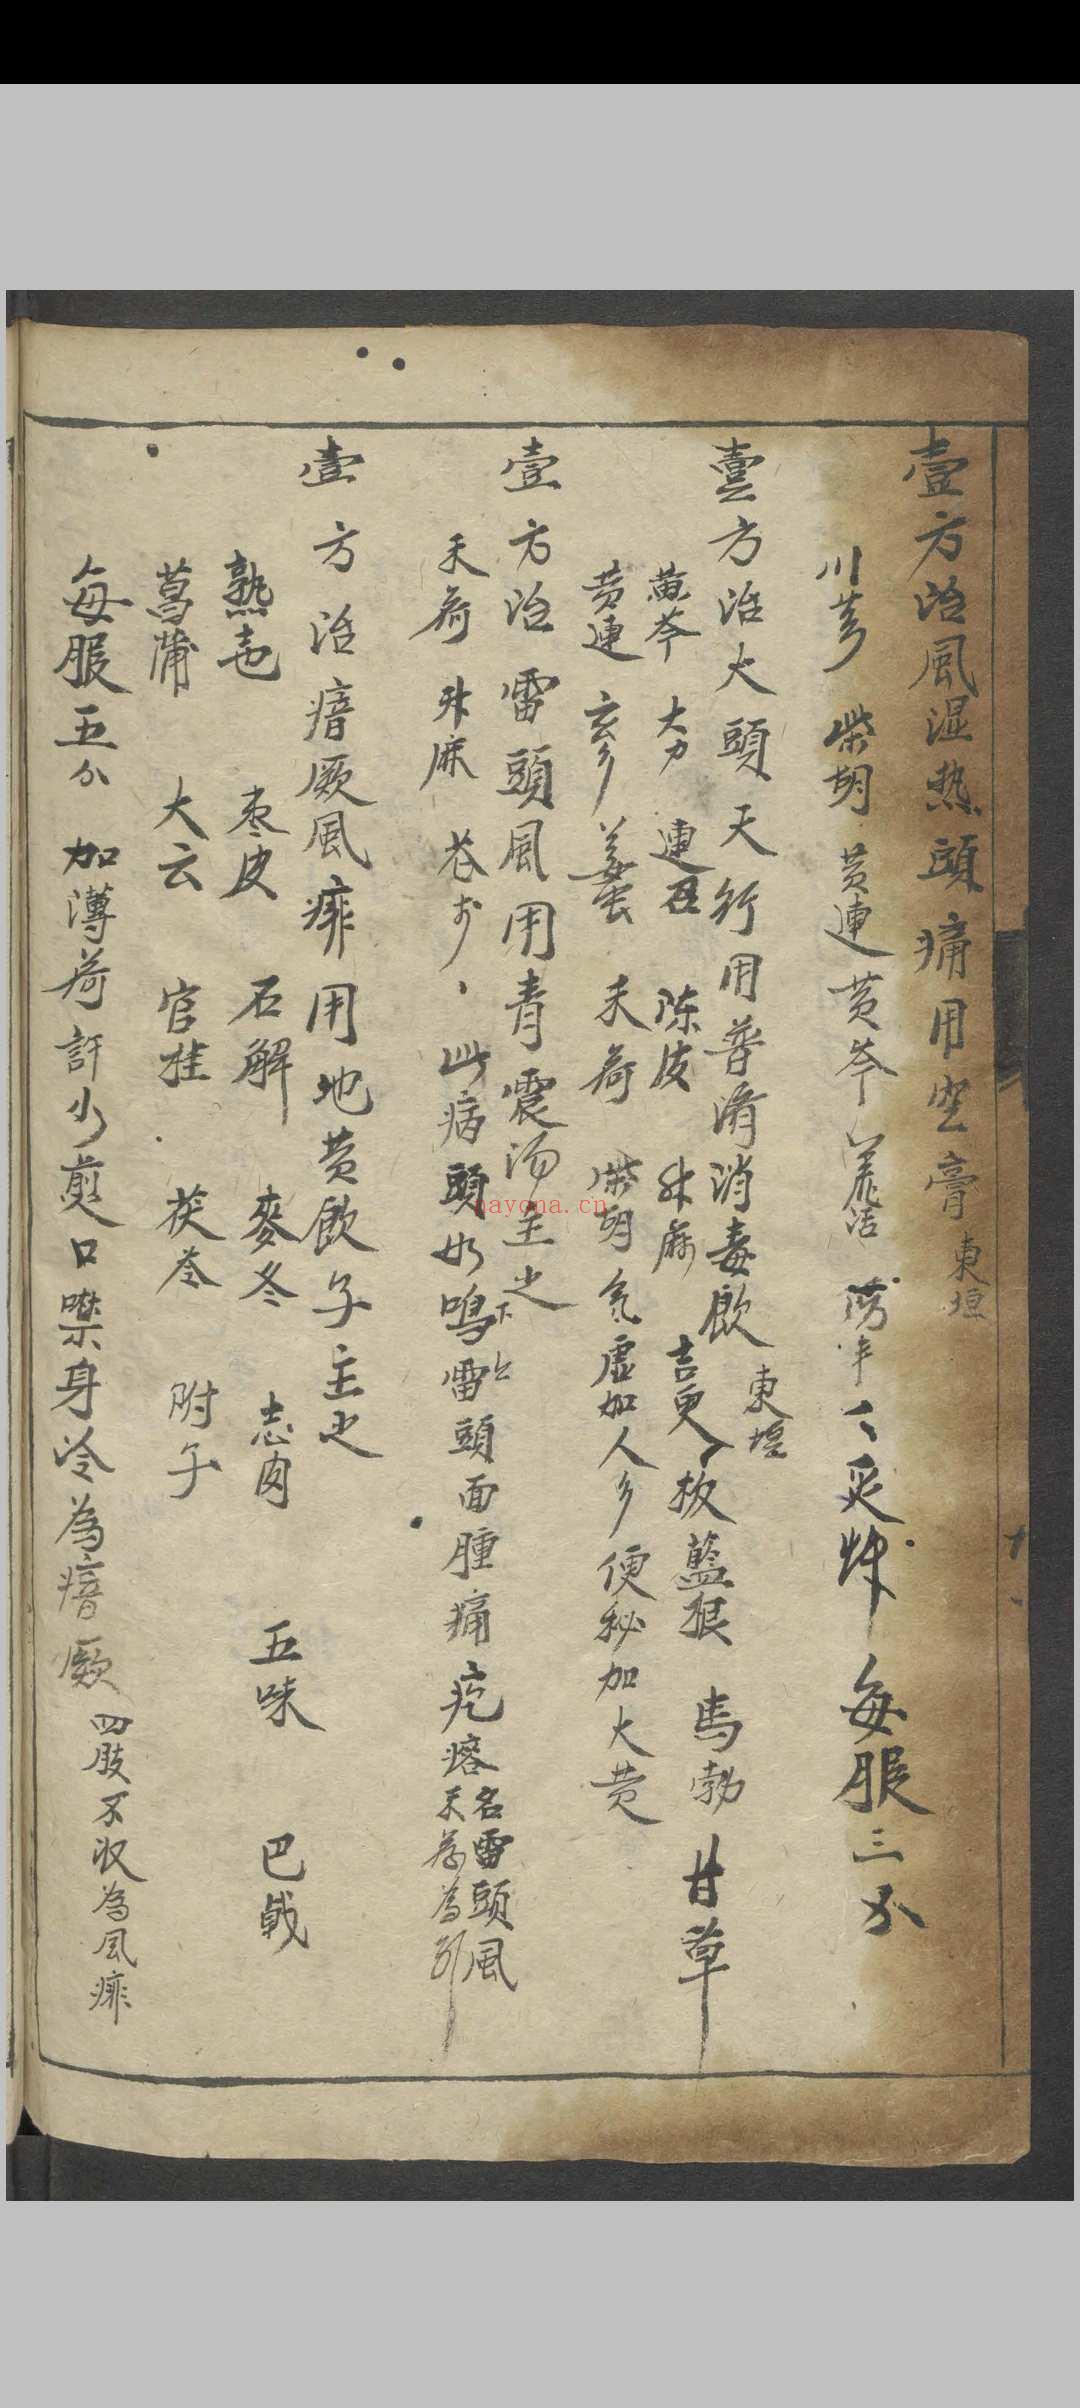 壹方治風湿热頭痛用空膏東垣
川芎 柴胡 黄連 黄芩 羌活 防丰 每服三分
壹方治大頭天行用普濟消毒飲東垣
黄芩 大力 連召 陈皮 升麻 吉更 板藍根 馬勃 甘草
黄連 玄參 姜蚕 禾荷 柴胡 氣虛加人 便秘加大黄
壹方治雷頭風用青震汤主之
禾荷 升麻 此病頭如鳴雷頭面腫痛疙瘩名雷頭風
禾荷為引
壹方治瘖厥風痱用地黄飲子主之
熟 枣皮 石解 麥冬 志肉 五味 巴戟
菖蒲 大云 官桂 茯苓 附子
每服五分 加薄荷許少煎口噤身冷為瘖厥四肢不收為風痱
nayona.cn